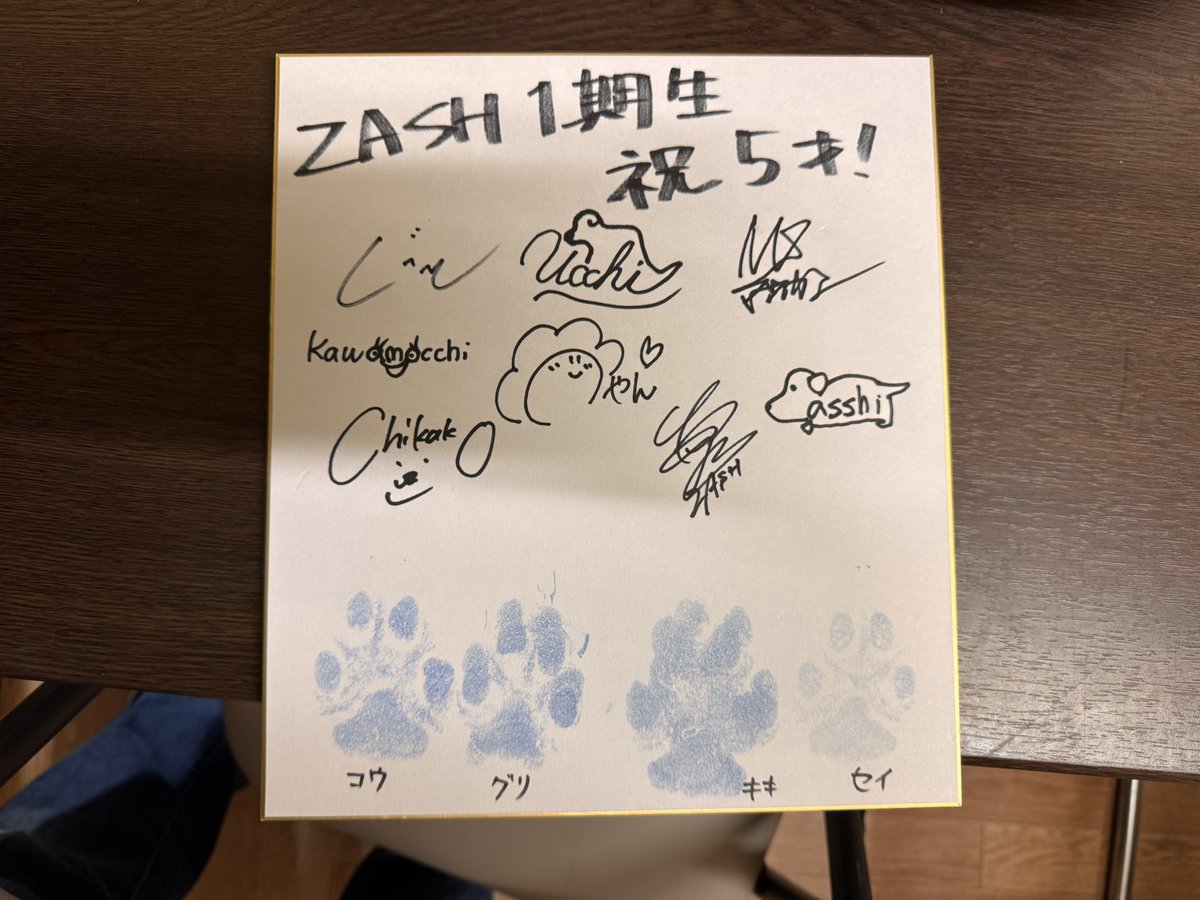 ZASH 1期生
祝 5才!
じーん
Ucchi
Kawamocchi
やん
asshi
Chikako
ZASH
コウ
グリ
キキ
セイ